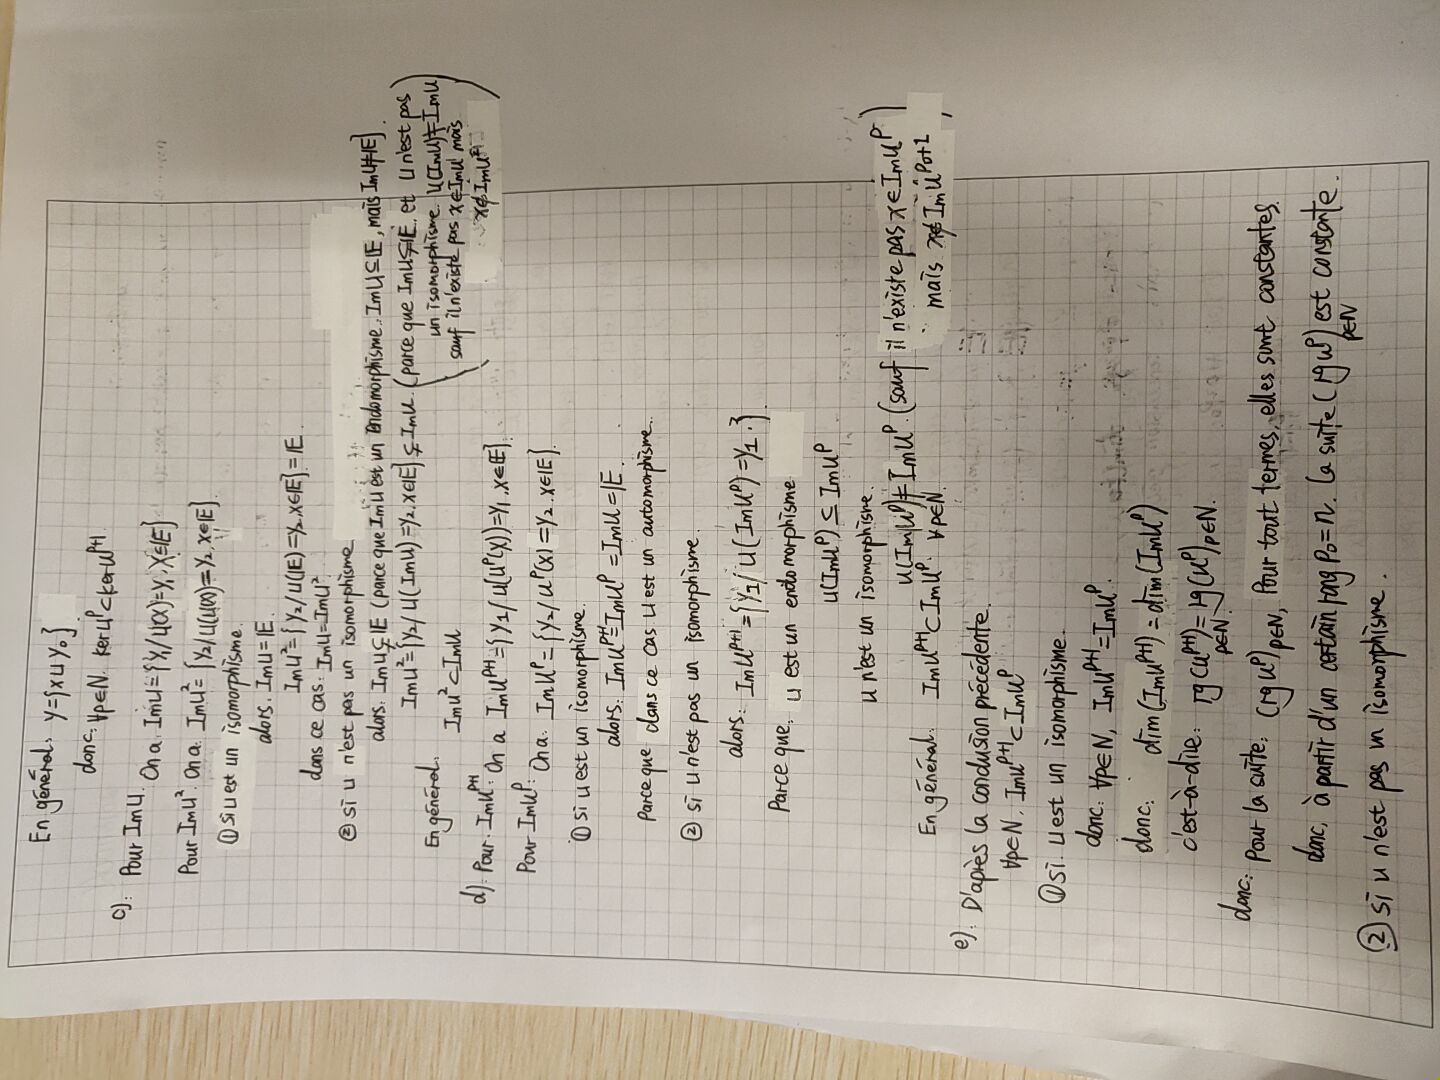 En général. y={x∪y₀}
donc. ∀p∈N. Ker u^p⊂Ker u^{p+1}
c). Pour Im u.
On a. Im u={y₁/ u(x)=y₁. x∈E}
Pour Im u². On a. Im u²={y₂/ u(u(x))=y₂. x∈E}.
① si u est un isomorphisme.
alors. Im u=E.
Im u²={y₂/ u(E)=y₂. x∈E}=E.
dans ce cas. Im u=Im u²
② si u n'est pas un isomorphisme
alors. Im u⊊E (parce que Im u est un Endomorphisme. Im u⊆E, mais Im u≠E).
Im u²={y₂/ u(Im u)=y₂. x∈E}⊊Im u. (parce que Im u⊊E. et u n'est pas
un isomorphisme. u(Im u)≠Im u
En général.
sauf il n'existe pas x∈Im u mais
x∉Im u²)
Im u²⊂Im u
d). Pour. Im u^{p+1}. On a Im u^{p+1}={y₁/ u(u^p(x))=y₁. x∈E}.
Pour Im u^p. On a. Im u^p={y₂/ u^p(x)=y₂. x∈E}.
① si u est un isomorphisme.
alors. Im u^{p+1}=Im u^p=Im u=E.
Parce que dans ce cas u est un automorphisme.
② si u n'est pas un isomorphisme.
alors. Im u^{p+1}={y₁/ u(Im u^p)=y₁.}
Parce que. u est un endomorphisme
u(Im u^p)⊆Im u^p
u n'est un isomorphisme.
u(Im u^p)≠Im u^p. (sauf il n'existe pas x∈Im u^p
mais x∉Im u^{p₀+1})
En général. Im u^{p+1}⊂Im u^p. ∀p∈N.
e). D'après la conclusion précédente.
∀p∈N. Im u^{p+1}⊂Im u^p
① si u est un isomorphisme.
donc. ∀p∈N, Im u^{p+1}=Im u^p.
donc. dim(Im u^{p+1})=dim(Im u^p)
c'est-à-dire. rg(u^{p+1})_{p∈N}=rg(u^p)_{p∈N}.
donc. pour la suite. (rg u^p)_{p∈N}, Pour tout termes, elles sunt constantes.
donc, à partir d'un certain rang p₀=n. la suite (rg u^p)_{p∈N} est constante.
② si u n'est pas un isomorphisme.